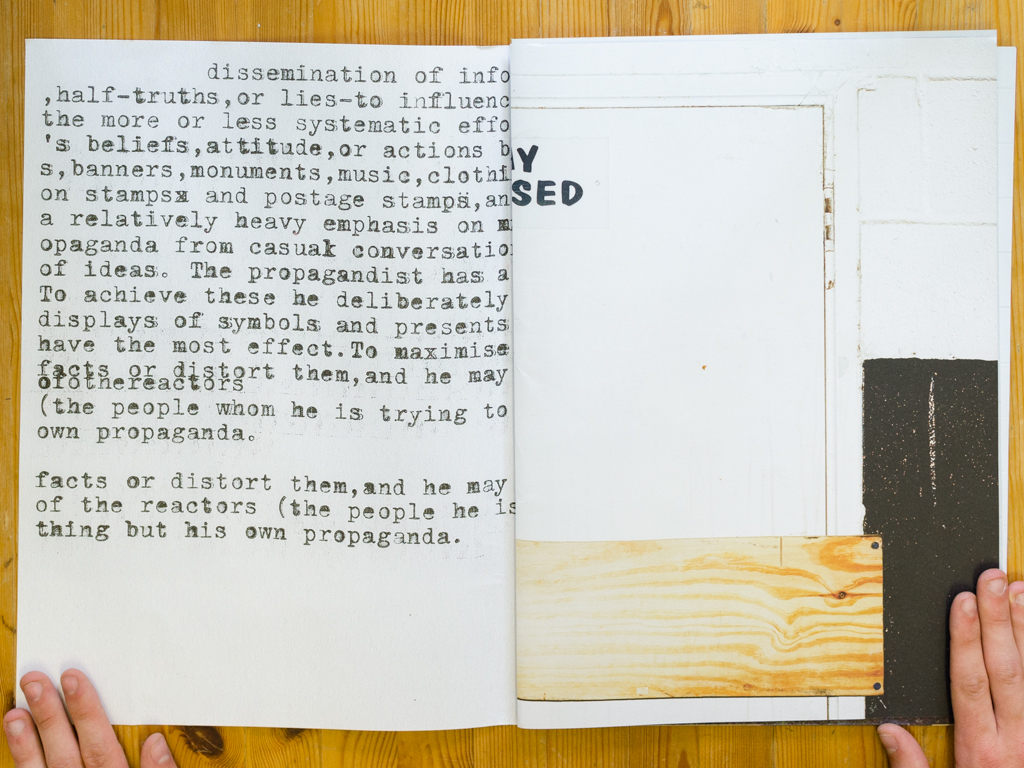 dissemination of info
,half-truths,or lies-to influenc
the more or less systematic effo
's beliefs,attitude,or actions b
s,banners,monuments,music,clothi
on stampsx and postage stamps,an
a relatively heavy emphasis on m
opaganda from casual conversatio
of ideas. The propagandist has a
To achieve these he deliberately
displays of symbols and presents
have the most effect.To maximise
facts or distort them,and he may
ofothereactors
(the people whom he is trying to
own propaganda.
facts or distort them,and he may
of the reactors (the people he is
thing but his own propaganda.
AY
SED